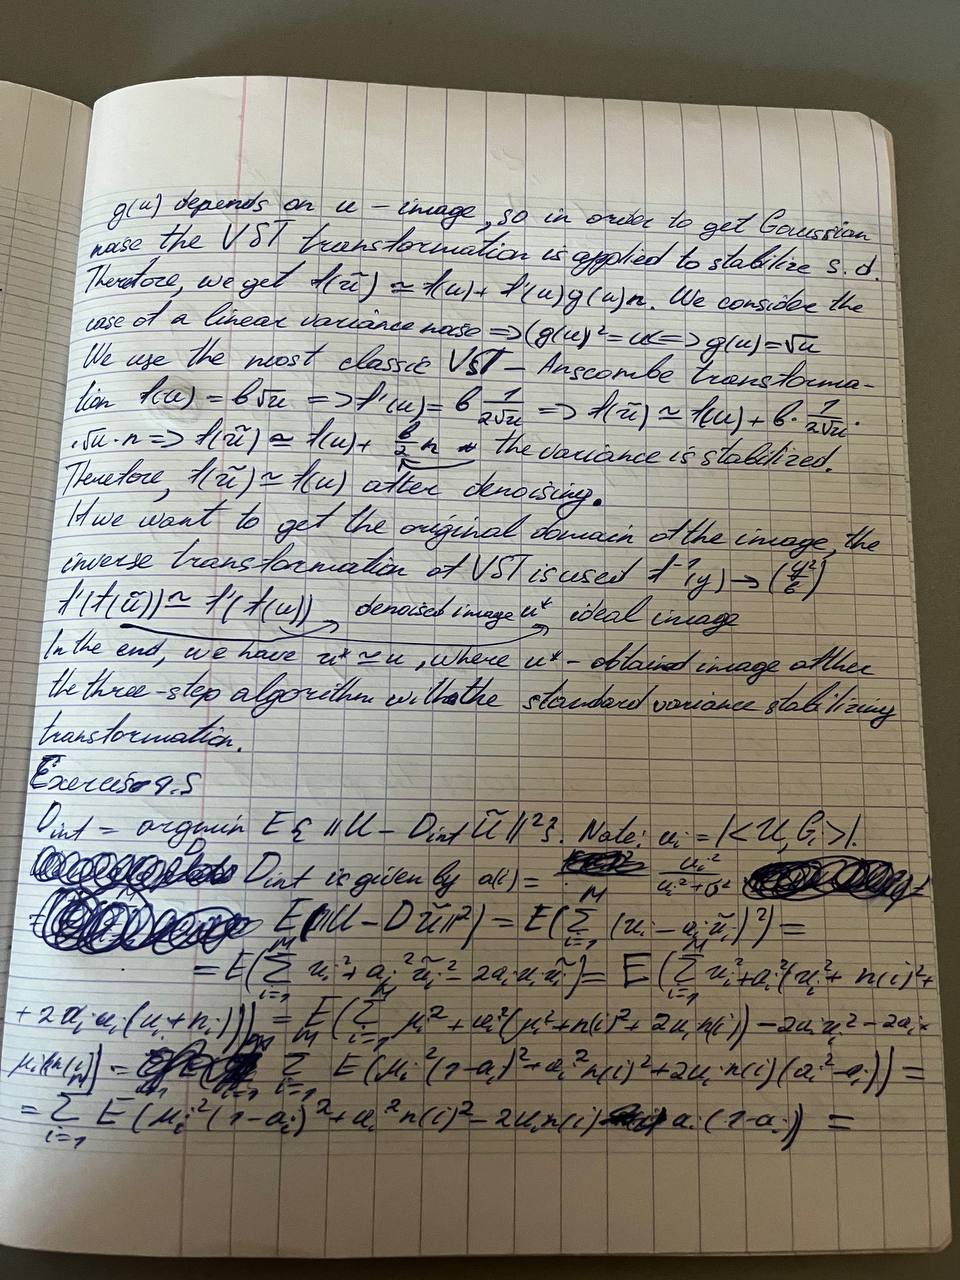 g(u) depends on u - image, so in order to get Gaussian
noise the VST transformation is applied to stabilize s.d.
Therefore, we get f(ũ) ≃ f(u) + f'(u)g(u)n. We consider the
case of a linear variance noise => (g(u)² = u <=> g(u) = √u
We use the most classic VST - Anscombe transforma-
tion f(u) = b√u => f'(u) = b 1/(2√u) => f(ũ) ≃ f(u) + b · 1/(2√u) ·
· √u · n => f(ũ) ≃ f(u) + b/2 n the variance is stabilized.
Therefore, f(ũ) ≃ f(u) after denoising.
If we want to get the original domain of the image, the
inverse transformation of VST is used f⁻¹(y) → (y²/b)
f'(f(ũ)) ≃ f'(f(u)) denoised image u* ideal image
In the end, we have u* ≃ u, where u* - obtained image after
the three-step algorithm with the standard variance stabilizing
transformation.
Exercise 9.5
D_int = argmin E{||U - D_int Ũ||²}. Note: u_i = |<U, G_i>|.
D_int is given by a(i) = u_i²/(u_i² + σ²)
E(||U - DŨ||²) = E(∑_{i=1}^M (u_i - a_i ũ_i)²) =
= E(∑_{i=1}^M u_i² + a_i² ũ_i² - 2a_i u_i ũ_i) = E(∑_{i=1}^M u_i² + a_i²(u_i² + n(i)² +
+ 2a_i u_i (u_i + n_i))) = E(∑_{i=1}^M μ_i² + a_i²(μ_i² + n(i)² + 2u_i n(i)) - 2a_i u_i² - 2a_i ·
μ_i n(i)) = ∑_{i=1}^M E(μ_i²(1-a_i)² + a_i² n(i)² + 2u_i n(i)(a_i² - a_i)) =
= ∑_{i=1}^M E(μ_i²(1-a_i)² + a_i² n(i)² - 2u_i n(i) a_i (1-a_i)) =